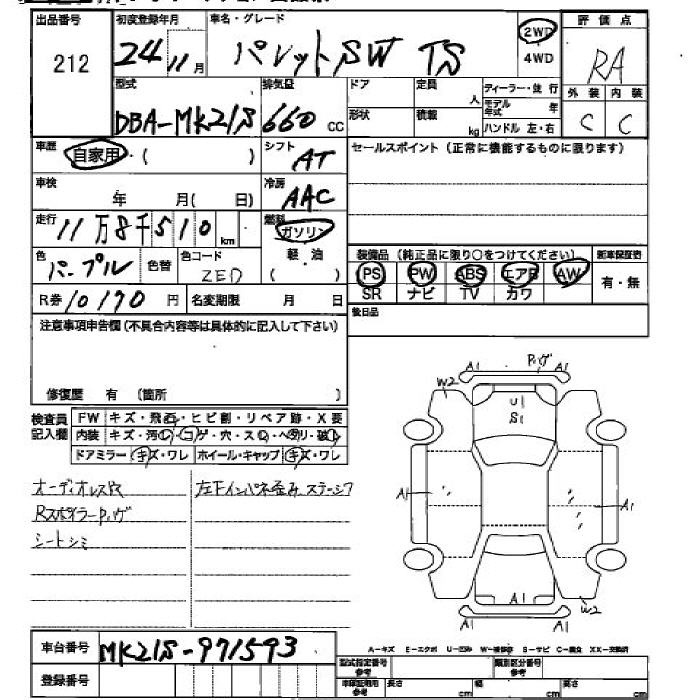 出品番号 212
初度登録年月 24 11月
車名・グレード パレットSW TS
2WD
4WD
評価点 RA
外装 内装
C C
型式 DBA-MK21S
排気量 660 CC
ドア
定員 人
ディーラー・並行
モデル年式 年
形状
積載 kg
ハンドル 左・右
車歴 自家用・( )
シフト AT
セールスポイント (正常に機能するものに限ります)
車検 年 月( 日)
冷房 AAC
走行 11万8千510 km
燃料 ガソリン
軽油
( )
色 パープル 色替
色コード ZED
装備品 (純正品に限り○をつけてください)
新車保証書
PS PW ABS エアB AW
有・無
SR ナビ TV カワ
R券 10170 円
名変期限 月 日
後日品
注意事項申告欄 (不具合内容等は具体的に記入して下さい)
修復歴 有 (箇所 )
検査員記入欄
FW キズ・飛石・ヒビ割・リペア跡・X要
内装 キズ・汚レ・コゲ・穴・スレ・ヘタリ・破レ
ドアミラー キズ・ワレ ホイール・キャップ キズ・ワレ
オーディオレス穴
Rスポイラーハゲ
シートシミ
左下インパネ歪み ステージ7
A1 ハゲ A1
W2
U1
S1
A1 A1
A1
A1 A1
W2
車台番号 MK21S-971593
登録番号
A-キズ E-エクボ U-凹み W-補修跡 S-サビ C-腐食 XX-交換済
型式指定番号 参考
類別区分番号 参考
車検証専用 参考
長さ cm
幅 cm
高さ cm